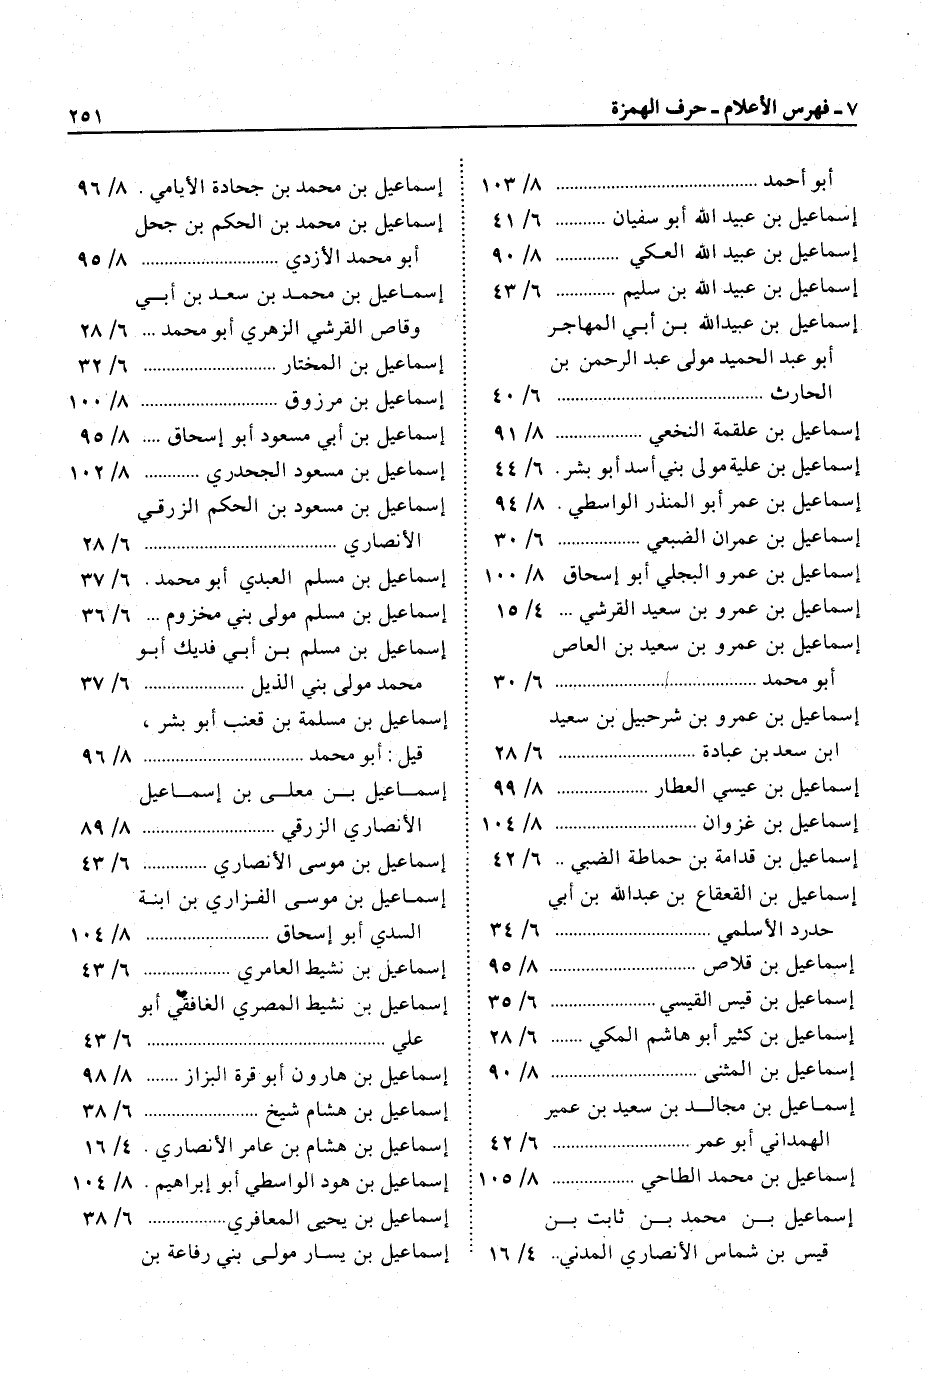 ٧ ـ فهرس الأعلام ـ حرف الهمزة
٢٥١
أبو أحمد ........ ٨/ ١٠٣
إسماعيل بن عبيد الله أبو سفيان ........ ٦/ ٤١
إسماعيل بن عبيد الله العكي ........ ٨/ ٩٠
إسماعيل بن عبيد الله بن سليم ........ ٦/ ٤٣
إسماعيل بن عبيدالله بن أبي المهاجر
أبو عبد الحميد مولى عبد الرحمن بن
الحارث ........ ٦/ ٤٠
إسماعيل بن علقمة النخعي ........ ٨/ ٩١
إسماعيل بن علية مولى بني أسد أبو بشر . ٦/ ٤٤
إسماعيل بن عمر أبو المنذر الواسطي . ٨/ ٩٤
إسماعيل بن عمران الضبعي ........ ٦/ ٣٠
إسماعيل بن عمرو البجلي أبو إسحاق ٨/ ١٠٠
إسماعيل بن عمرو بن سعيد القرشي ... ٤/ ١٥
إسماعيل بن عمرو بن سعيد بن العاص
أبو محمد ........ ٦/ ٣٠
إسماعيل بن عمرو بن شرحبيل بن سعيد
ابن سعد بن عبادة ........ ٦/ ٢٨
إسماعيل بن عيسي العطار ........ ٨/ ٩٩
إسماعيل بن غزوان ........ ٨/ ١٠٤
إسماعيل بن قدامة بن حماطة الضبي .. ٦/ ٤٢
إسماعيل بن القعقاع بن عبدالله بن أبي
حدرد الأسلمي ........ ٦/ ٣٤
إسماعيل بن قلاص ........ ٨/ ٩٥
إسماعيل بن قيس القيسي ........ ٦/ ٣٥
إسماعيل بن كثير أبو هاشم المكي ....... ٦/ ٢٨
إسماعيل بن المثنى ........ ٨/ ٩٠
إسماعيل بن مجالد بن سعيد بن عمير
الهمداني أبو عمر ........ ٦/ ٤٢
إسماعيل بن محمد الطاحي ........ ٨/ ١٠٥
إسماعيل بن محمد بن ثابت بن
قيس بن شماس الأنصاري المدني .. ٤/ ١٦
إسماعيل بن محمد بن جحادة الأيامي . ٨/ ٩٦
إسماعيل بن محمد بن الحكم بن جحل
أبو محمد الأزدي ........ ٨/ ٩٥
إسماعيل بن محمد بن سعد بن أبي
وقاص القرشي الزهري أبو محمد ... ٦/ ٢٨
إسماعيل بن المختار ........ ٦/ ٣٢
إسماعيل بن مرزوق ........ ٨/ ١٠٠
إسماعيل بن أبي مسعود أبو إسحاق .... ٨/ ٩٥
إسماعيل بن مسعود الجحدري ........ ٨/ ١٠٢
إسماعيل بن مسعود بن الحكم الزرقي
الأنصاري ........ ٦/ ٢٨
إسماعيل بن مسلم العبدي أبو محمد . ٦/ ٣٧
إسماعيل بن مسلم مولى بني مخزوم ... ٦/ ٣٦
إسماعيل بن مسلم بن أبي فديك أبو
محمد مولى بني الذيل ........ ٦/ ٣٧
إسماعيل بن مسلمة بن قعنب أبو بشر ،
قيل : أبو محمد ........ ٨/ ٩٦
إسماعيل بن معلى بن إسماعيل
الأنصاري الزرقي ........ ٨/ ٨٩
إسماعيل بن موسى الأنصاري ........ ٦/ ٤٣
إسماعيل بن موسى الفزاري بن ابنة
السدي أبو إسحاق ........ ٨/ ١٠٤
إسماعيل بن نشيط العامري ........ ٦/ ٤٣
إسماعيل بن نشيط المصري الغافقي أبو
علي ........ ٦/ ٤٣
إسماعيل بن هارون أبو قرة البزاز ....... ٨/ ٩٨
إسماعيل بن هشام شيخ ........ ٦/ ٣٨
إسماعيل بن هشام بن عامر الأنصاري . ٤/ ١٦
إسماعيل بن هود الواسطي أبو إبراهيم . ٨/ ١٠٤
إسماعيل بن يحيى المعافري ........ ٦/ ٣٨
إسماعيل بن يسار مولى بني رفاعة بن